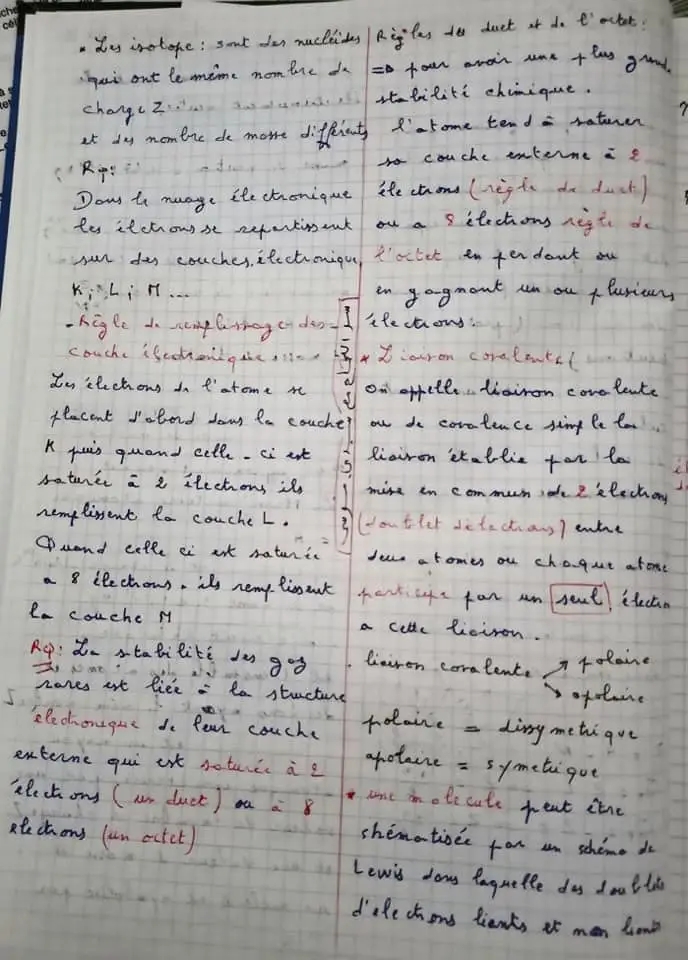 * Les isotope : sont des nucléides
qui ont le même nombre de
charge Z
et des nombre de masse différents
Rq :
Dans le nuage électronique
les élctrons se repartissent
sur des couches électronique
K ; L ; M ...
- Règle de remplissage des
couche électronique
Les électrons de l'atome se
placent d'abord dans la couche
K puis quand celle-ci est
saturée à 2 élections ils
remplissent la couche L.
Quand celle ci est saturée
a 8 élections. ils remplissent
la couche M
Rq : La stabilité des gaz
rares est liée à la structure
électronique de leur couche
externe qui est saturée à 2
élections ( un duet ) ou à 8
elections (un octet)
Règles du duet et de l'octet :
=> pour avoir une plus grand
stabilité chimique .
l'atome tend à saturer
sa couche externe à 2
élections (règle de duet)
ou a 8 élections règle de
l'octet en perdant ou
en gagnant un ou plusieurs
élections.
* Liaison covalente (
On appelle liaison covalente
ou de covalence simple la
liaison établie par la
mise en commun de 2 élections
(doublet délections) entre
deux atomes ou chaque atome
participe par un seul élection
a cette liaison .
. liaison covalente → polaire
→ apolaire
polaire = dissymetrique
apolaire = symetrique
* une molécule peut être
shématisée par un schéma de
Lewis dans laquelle des doublets
d'elections liants et non liants